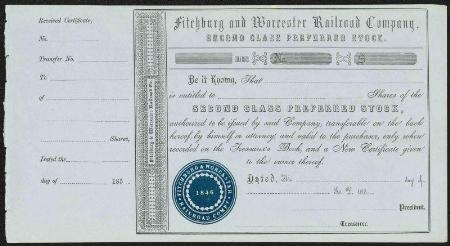 Received Certificate,
No.
Transfer No.
To
of
Shares,
Dated the
day of 185
Fitchburg & Worcester Railroad Co.
Fitchburg and Worcester Railroad Company,
SECOND CLASS PREFERRED STOCK.
185
No.
$
Be it Known, That
is entitled to Shares of the
SECOND CLASS PREFERRED STOCK,
authorized to be issued by said Company, transferable on the back
hereof, by himself or attorney, and valid to the purchaser, only when
recorded on the Treasurer's Book, and a New Certificate given
to the owner thereof.
Dated, the day of
A. D. 185
President.
Treasurer.
FITCHBURG & WORCESTER
1846
RAILROAD CORP.